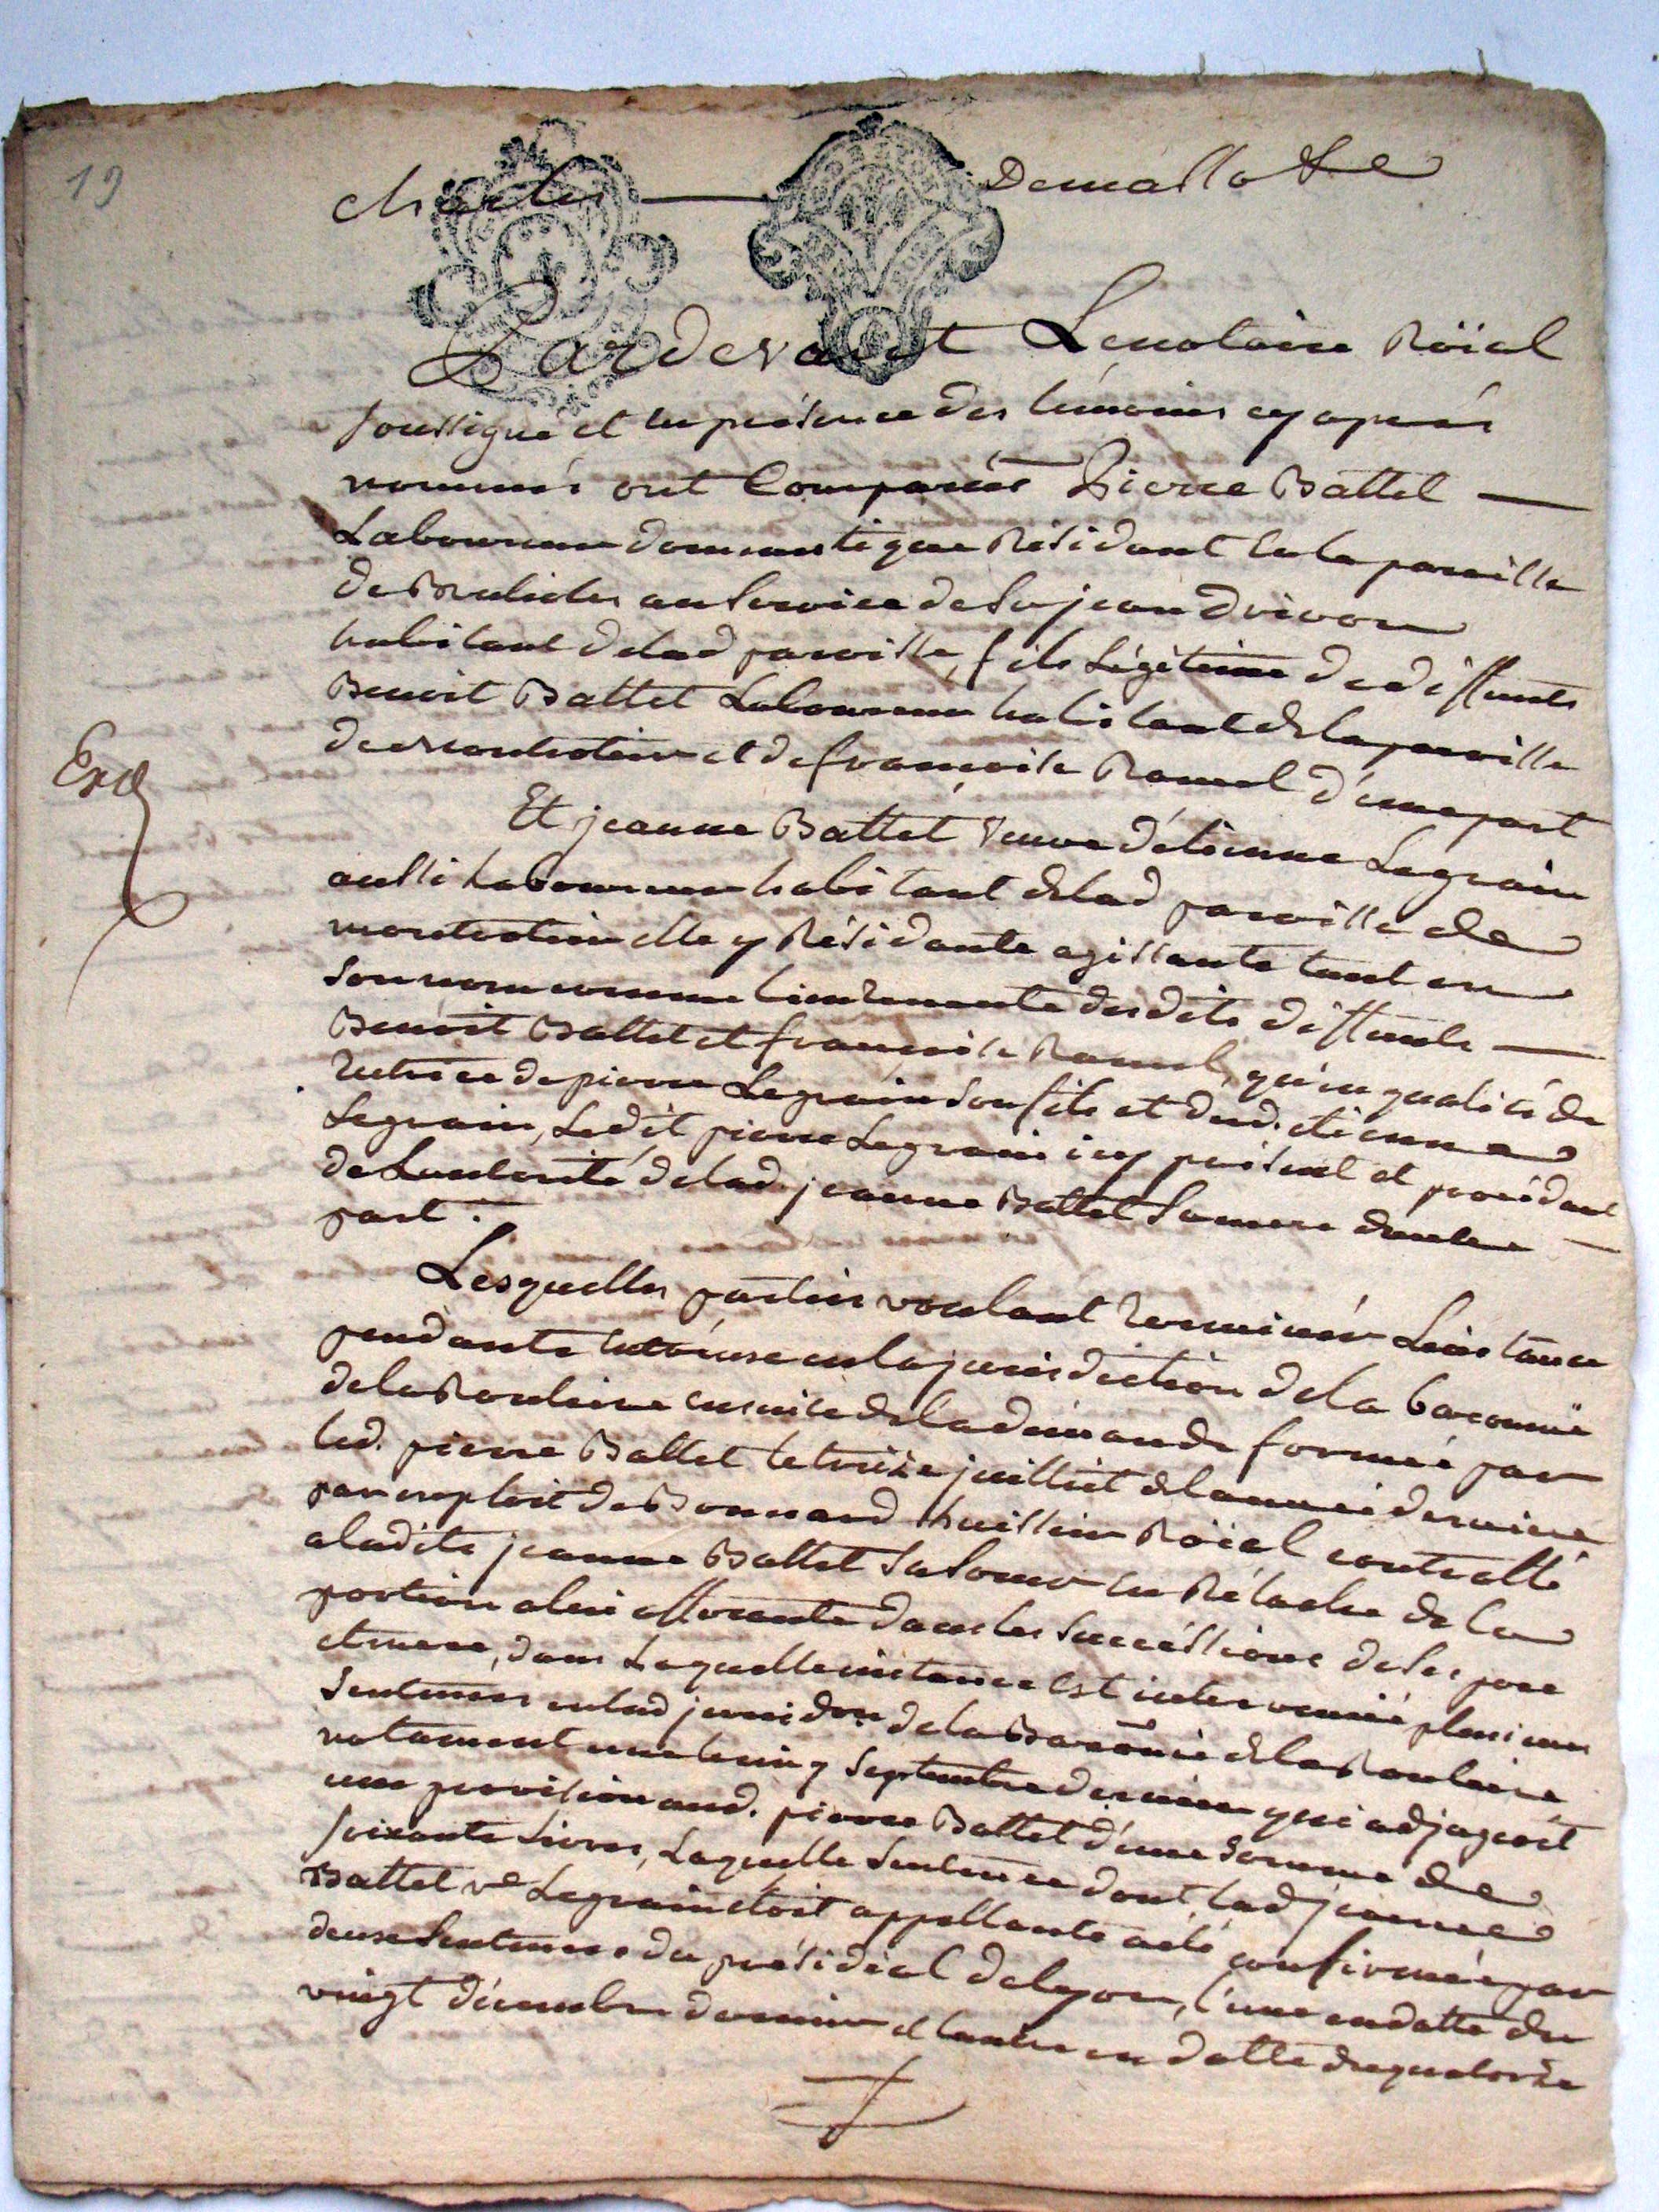 19
charles Demassotte
Pardevant Lenotaire Röial
soussigné et en présence des témoins cy apres
nommés ont Comparus Pierre Battet
Laboureur domeustique Résidant en la paroisse
de au service de Sr jean drivon
habitant delad paroisse, fils légitime de deffunts
Benoit Battet Laboureur habitant de la paroisse
de montrotier et de françoise Ramel d'une part
Exp
Et jeanne Battet veuve d'étienne Legrain
aussi Laboureur habitant delad paroisse de
montrotier elle y Résidante agissante tant en
son nom comme bientenante desdits deffunts
Benoit Battet et françoise Ramel, qu'en qualité de
tutrice de pierre Legrain son fils et dud. étienne
Legrain, Ledit pierre Legrain icy présent et procédant
de Lautorité delad. jeanne Battet Sa mere dautre
part.
Lesquelles parties voulant terminér Linstance
pendante entreuse en la jurisdiction de la baronnie
de la Rouliere ensuite de la demande formée par
led. pierre Battet le treize juilliet de lannée derniere
par exploit de Bonnard huissier Röial controllé
a ladite jeanne Battet Sa Soeur en Rélache de la
portion a lui afferente dans les succéssions de ses pere
et mere, dans Laquelle instance est intervenüe plusieurs
Sentences en lad jurisdon. de la Baronie de la Rouliere
notament une le cinq Septembre dernier qui adjugeoit
une provision aud. pierre Battet d'une Somme de
soixante Livres, Laquelle Sentence dont lad jeanne
Battet ve Legrain étoit appellante a été confirmée par
deuse Sentences du présidial de lyon, l'une en datte du
vingt décembre dernier et lautre en datte du quatorze